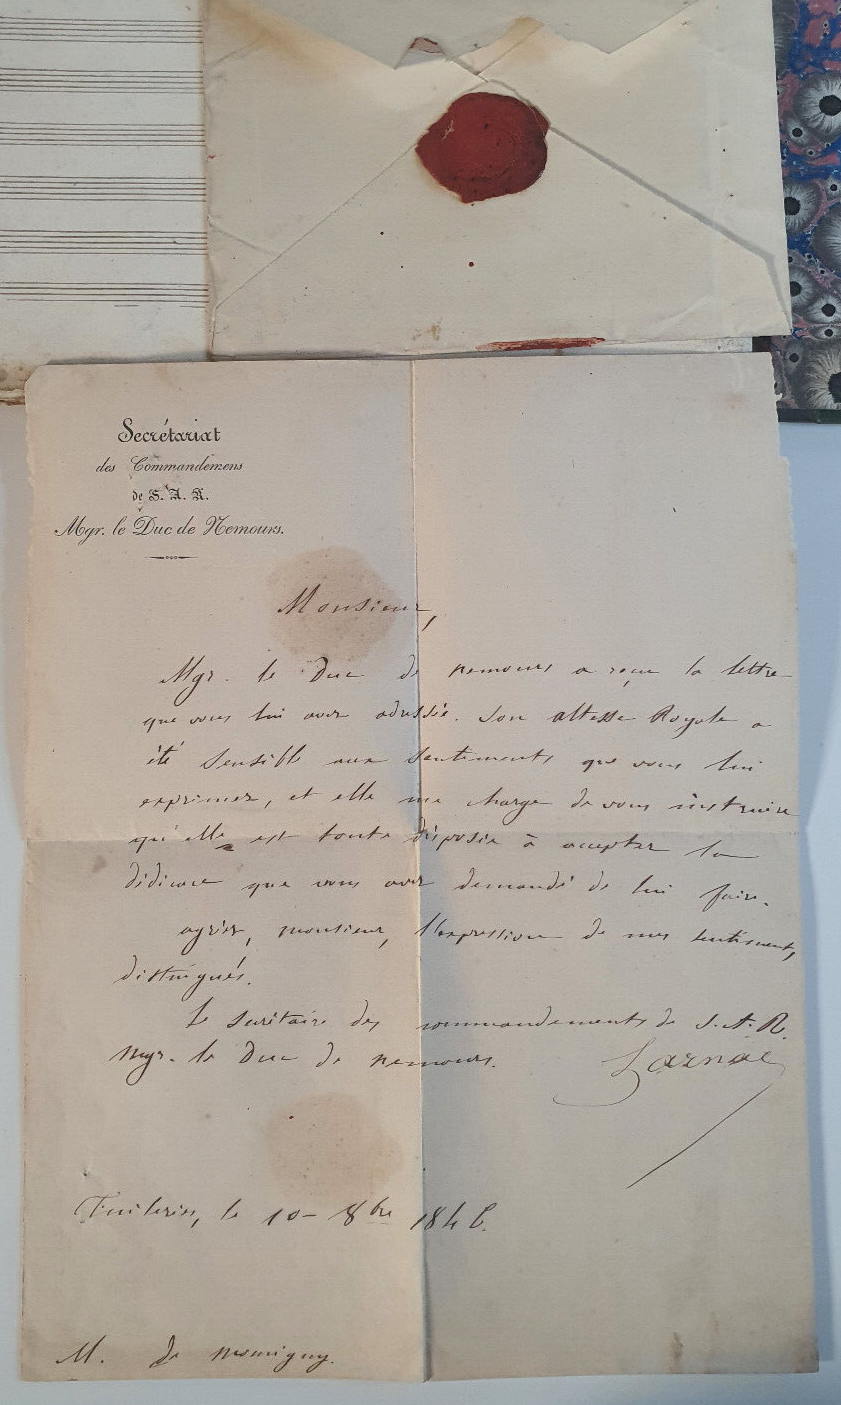 Secrétariat
des Commandemens
de S. A. R.
Mgr. le Duc de Nemours.
Monsieur,
Mgr. le Duc de nemours a reçu la lettre
que vous lui avez adressée. Son altesse Royale a
été sensible aux sentiments que vous lui
exprimez, et elle me charge de vous instruire
qu'elle est toute disposée à accepter la
dédicace que vous avez demandé de lui faire.
agréez, monsieur, l'expression de mes sentiments
distingués.
Le secrétaire des commandements de S. A. R.
Mgr. le Duc de nemours.
Larnac
Tuileries, le 10 8bre 1846.
M. de momigny.